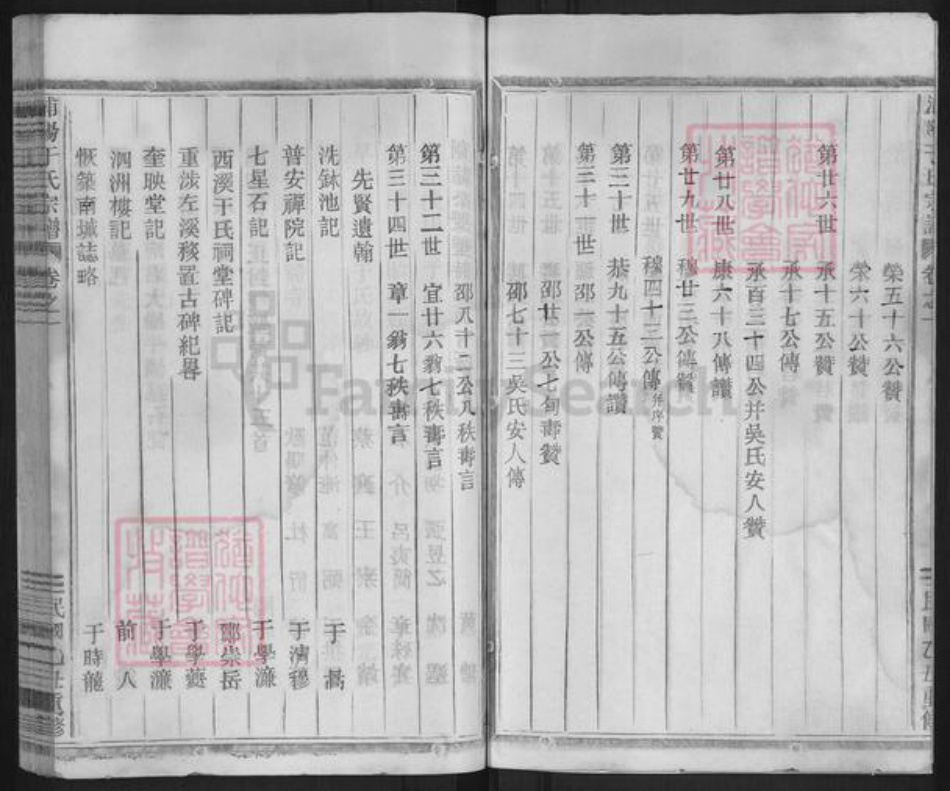 榮五十六公贊
榮六十公贊
第廿六世 承十五公贊
承十七公傳
承百三十四公并吳氏安人贊
第廿八世 康六十八傳讚
第廿九世 穆廿三公傳贊
穆四十三公傳并序贊
第三十世 恭九十五公傳讚
第三十一世 邵一公傳
邵廿一公七旬壽贊
邵七十三吳氏安人傳
邵八十二公八秩壽言
第三十二世 宜廿六翁七秩壽言
第三十四世 章一翁七秩壽言
先賢遺翰
洗鉢池記 于 暠
普安禪院記 于濟穆
七星石記 于學濂
西溪于氏祠堂碑記 鄭崇岳
重涉左溪務置古碑紀畧 于學
奎映堂記 于學濂
泗洲樓記 前人
恢築南城誌略 于時龍
浦陽于氏宗譜 卷之一
民國乙丑重修
FamilySearch